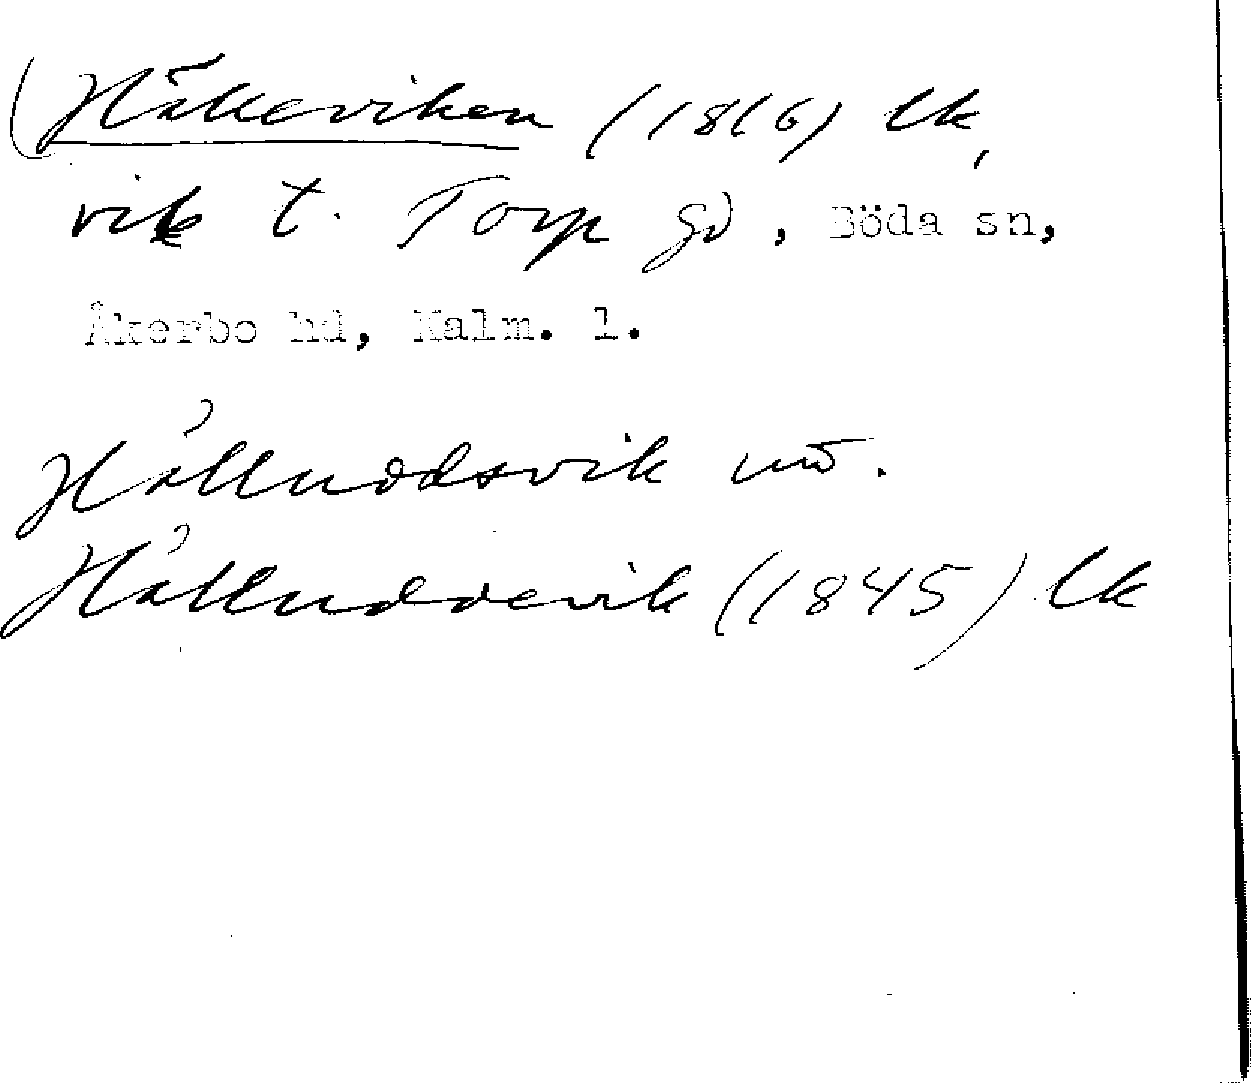 (Hälleviken (1816) lk,
vik t. Torp gd, Böda sn,
Åkerbo hd, Kalm. l.
Hålluddsvik
Hålluddevik (1845) lk